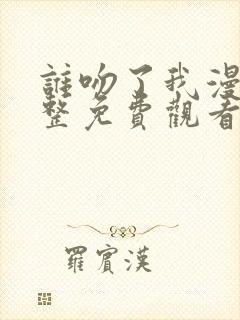 誰吻了我漫
整免費觀看
羅賓漢